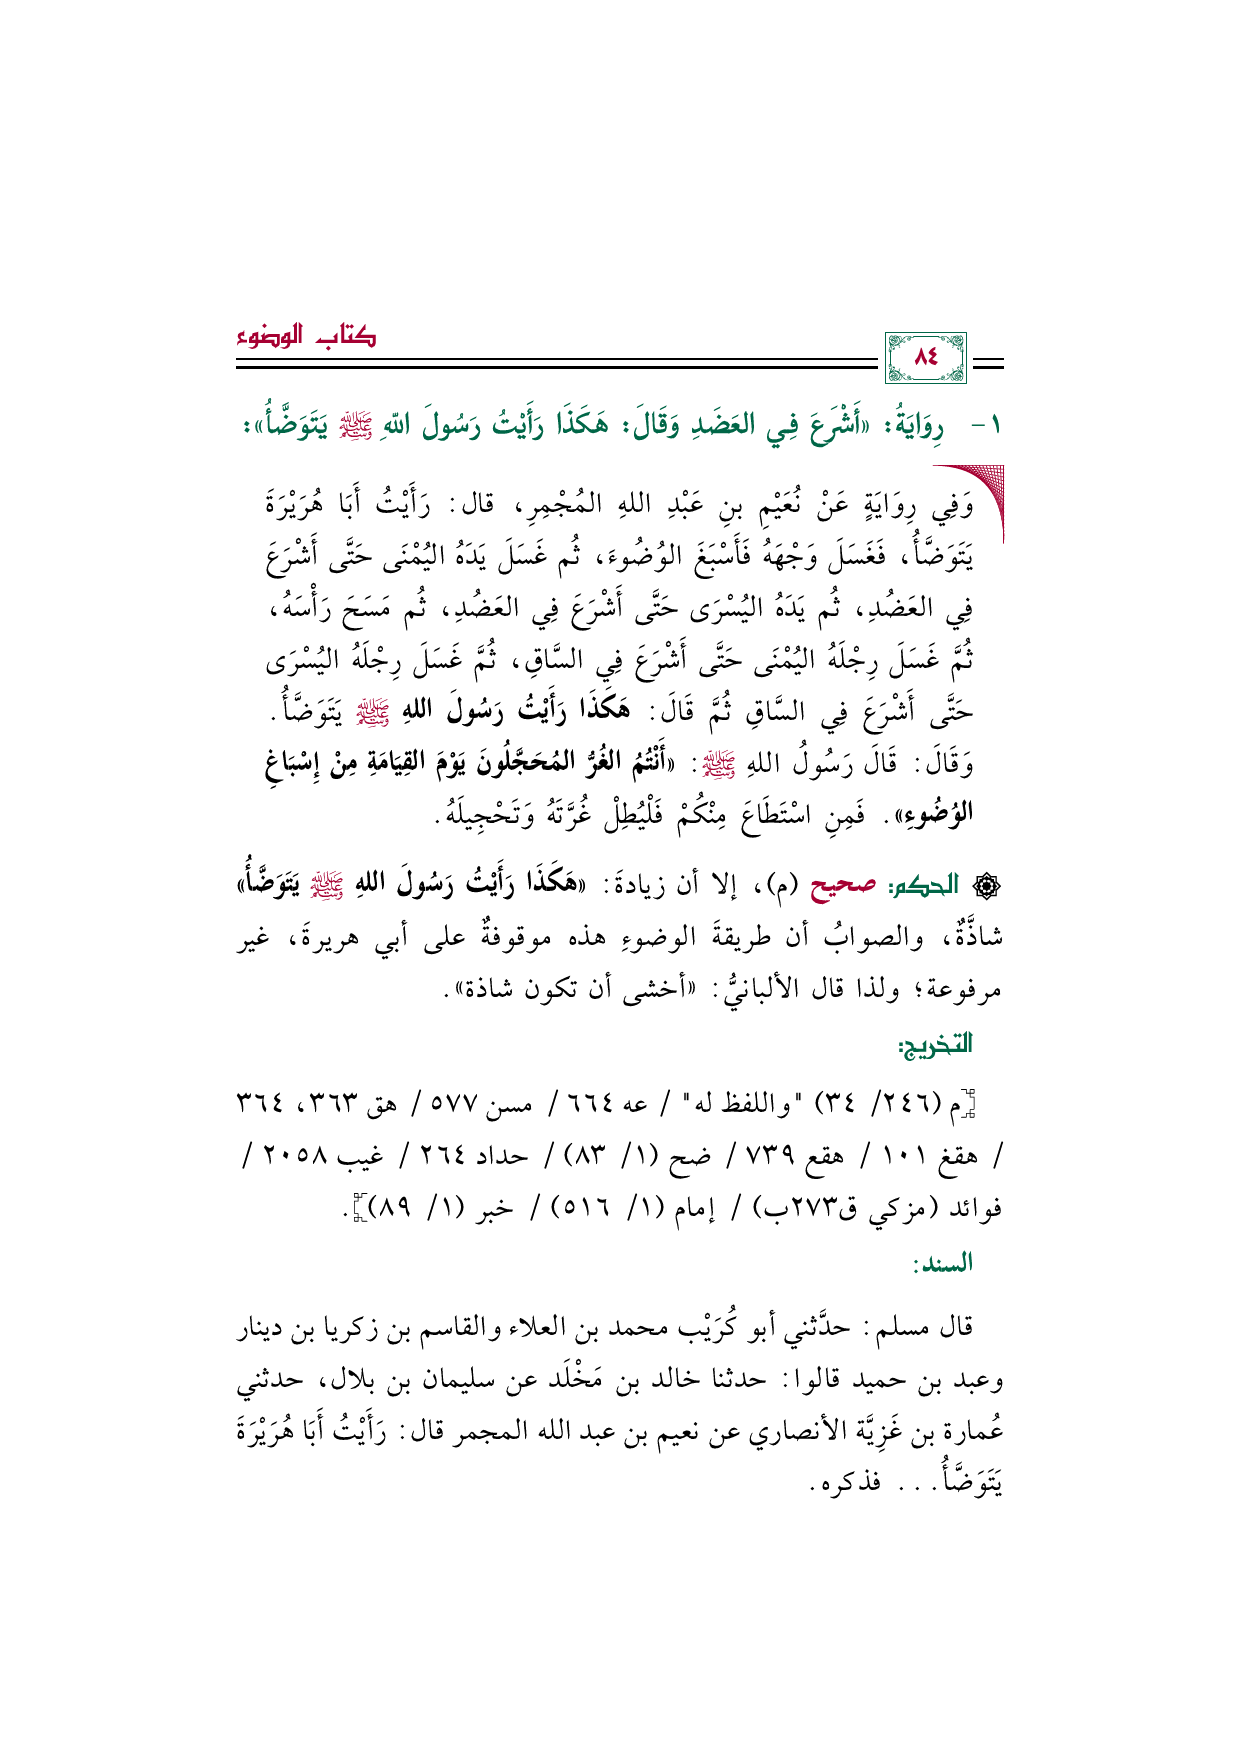 كتاب الوضوء
٨٤
١- رِوَايَةُ: «أَشْرَعَ فِي العَضَدِ وَقَالَ: هَكَذَا رَأَيْتُ رَسُولَ اللهِ ﷺ يَتَوَضَّأُ»:
وَفِي رِوَايَةٍ عَنْ نُعَيْمِ بنِ عَبْدِ اللهِ المُجْمِرِ، قال: رَأَيْتُ أَبَا هُرَيْرَةَ
يَتَوَضَّأُ، فَغَسَلَ وَجْهَهُ فَأَسْبَغَ الوُضُوءَ، ثُم غَسَلَ يَدَهُ اليُمْنَى حَتَّى أَشْرَعَ
فِي العَضُدِ، ثُم يَدَهُ اليُسْرَى حَتَّى أَشْرَعَ فِي العَضُدِ، ثُم مَسَحَ رَأْسَهُ،
ثُمَّ غَسَلَ رِجْلَهُ اليُمْنَى حَتَّى أَشْرَعَ فِي السَّاقِ، ثُمَّ غَسَلَ رِجْلَهُ اليُسْرَى
حَتَّى أَشْرَعَ فِي السَّاقِ ثُمَّ قَالَ: هَكَذَا رَأَيْتُ رَسُولَ اللهِ ﷺ يَتَوَضَّأُ.
وَقَالَ: قَالَ رَسُولُ اللهِ ﷺ: «أَنْتُمُ الغُرُّ المُحَجَّلُونَ يَوْمَ القِيَامَةِ مِنْ إِسْبَاغِ
الوُضُوءِ». فَمِنِ اسْتَطَاعَ مِنْكُمْ فَلْيُطِلْ غُرَّتَهُ وَتَحْجِيلَهُ.
۞ الحكم: صحيح (م)، إلا أن زيادةَ: «هَكَذَا رَأَيْتُ رَسُولَ اللهِ ﷺ يَتَوَضَّأُ»
شاذَّةٌ، والصوابُ أن طريقةَ الوضوءِ هذه موقوفةٌ على أبي هريرةَ، غير
مرفوعة؛ ولذا قال الألبانيُّ: «أخشى أن تكون شاذة».
التخريج:
[م (٢٤٦/ ٣٤) "واللفظ له" / عه ٦٦٤ / مسن ٥٧٧ / هق ٣٦٣، ٣٦٤
/ هقغ ١٠١ / هقع ٧٣٩ / ضح (١/ ٨٣) / حداد ٢٦٤ / غيب ٢٠٥٨ /
فوائد (مزكي ق٢٧٣ب) / إمام (١/ ٥١٦) / خبر (١/ ٨٩)].
السند:
قال مسلم: حدَّثني أبو كُرَيْب محمد بن العلاء والقاسم بن زكريا بن دينار
وعبد بن حميد قالوا: حدثنا خالد بن مَخْلَد عن سليمان بن بلال، حدثني
عُمارة بن غَزِيَّة الأنصاري عن نعيم بن عبد الله المجمر قال: رَأَيْتُ أَبَا هُرَيْرَةَ
يَتَوَضَّأُ... فذكره.